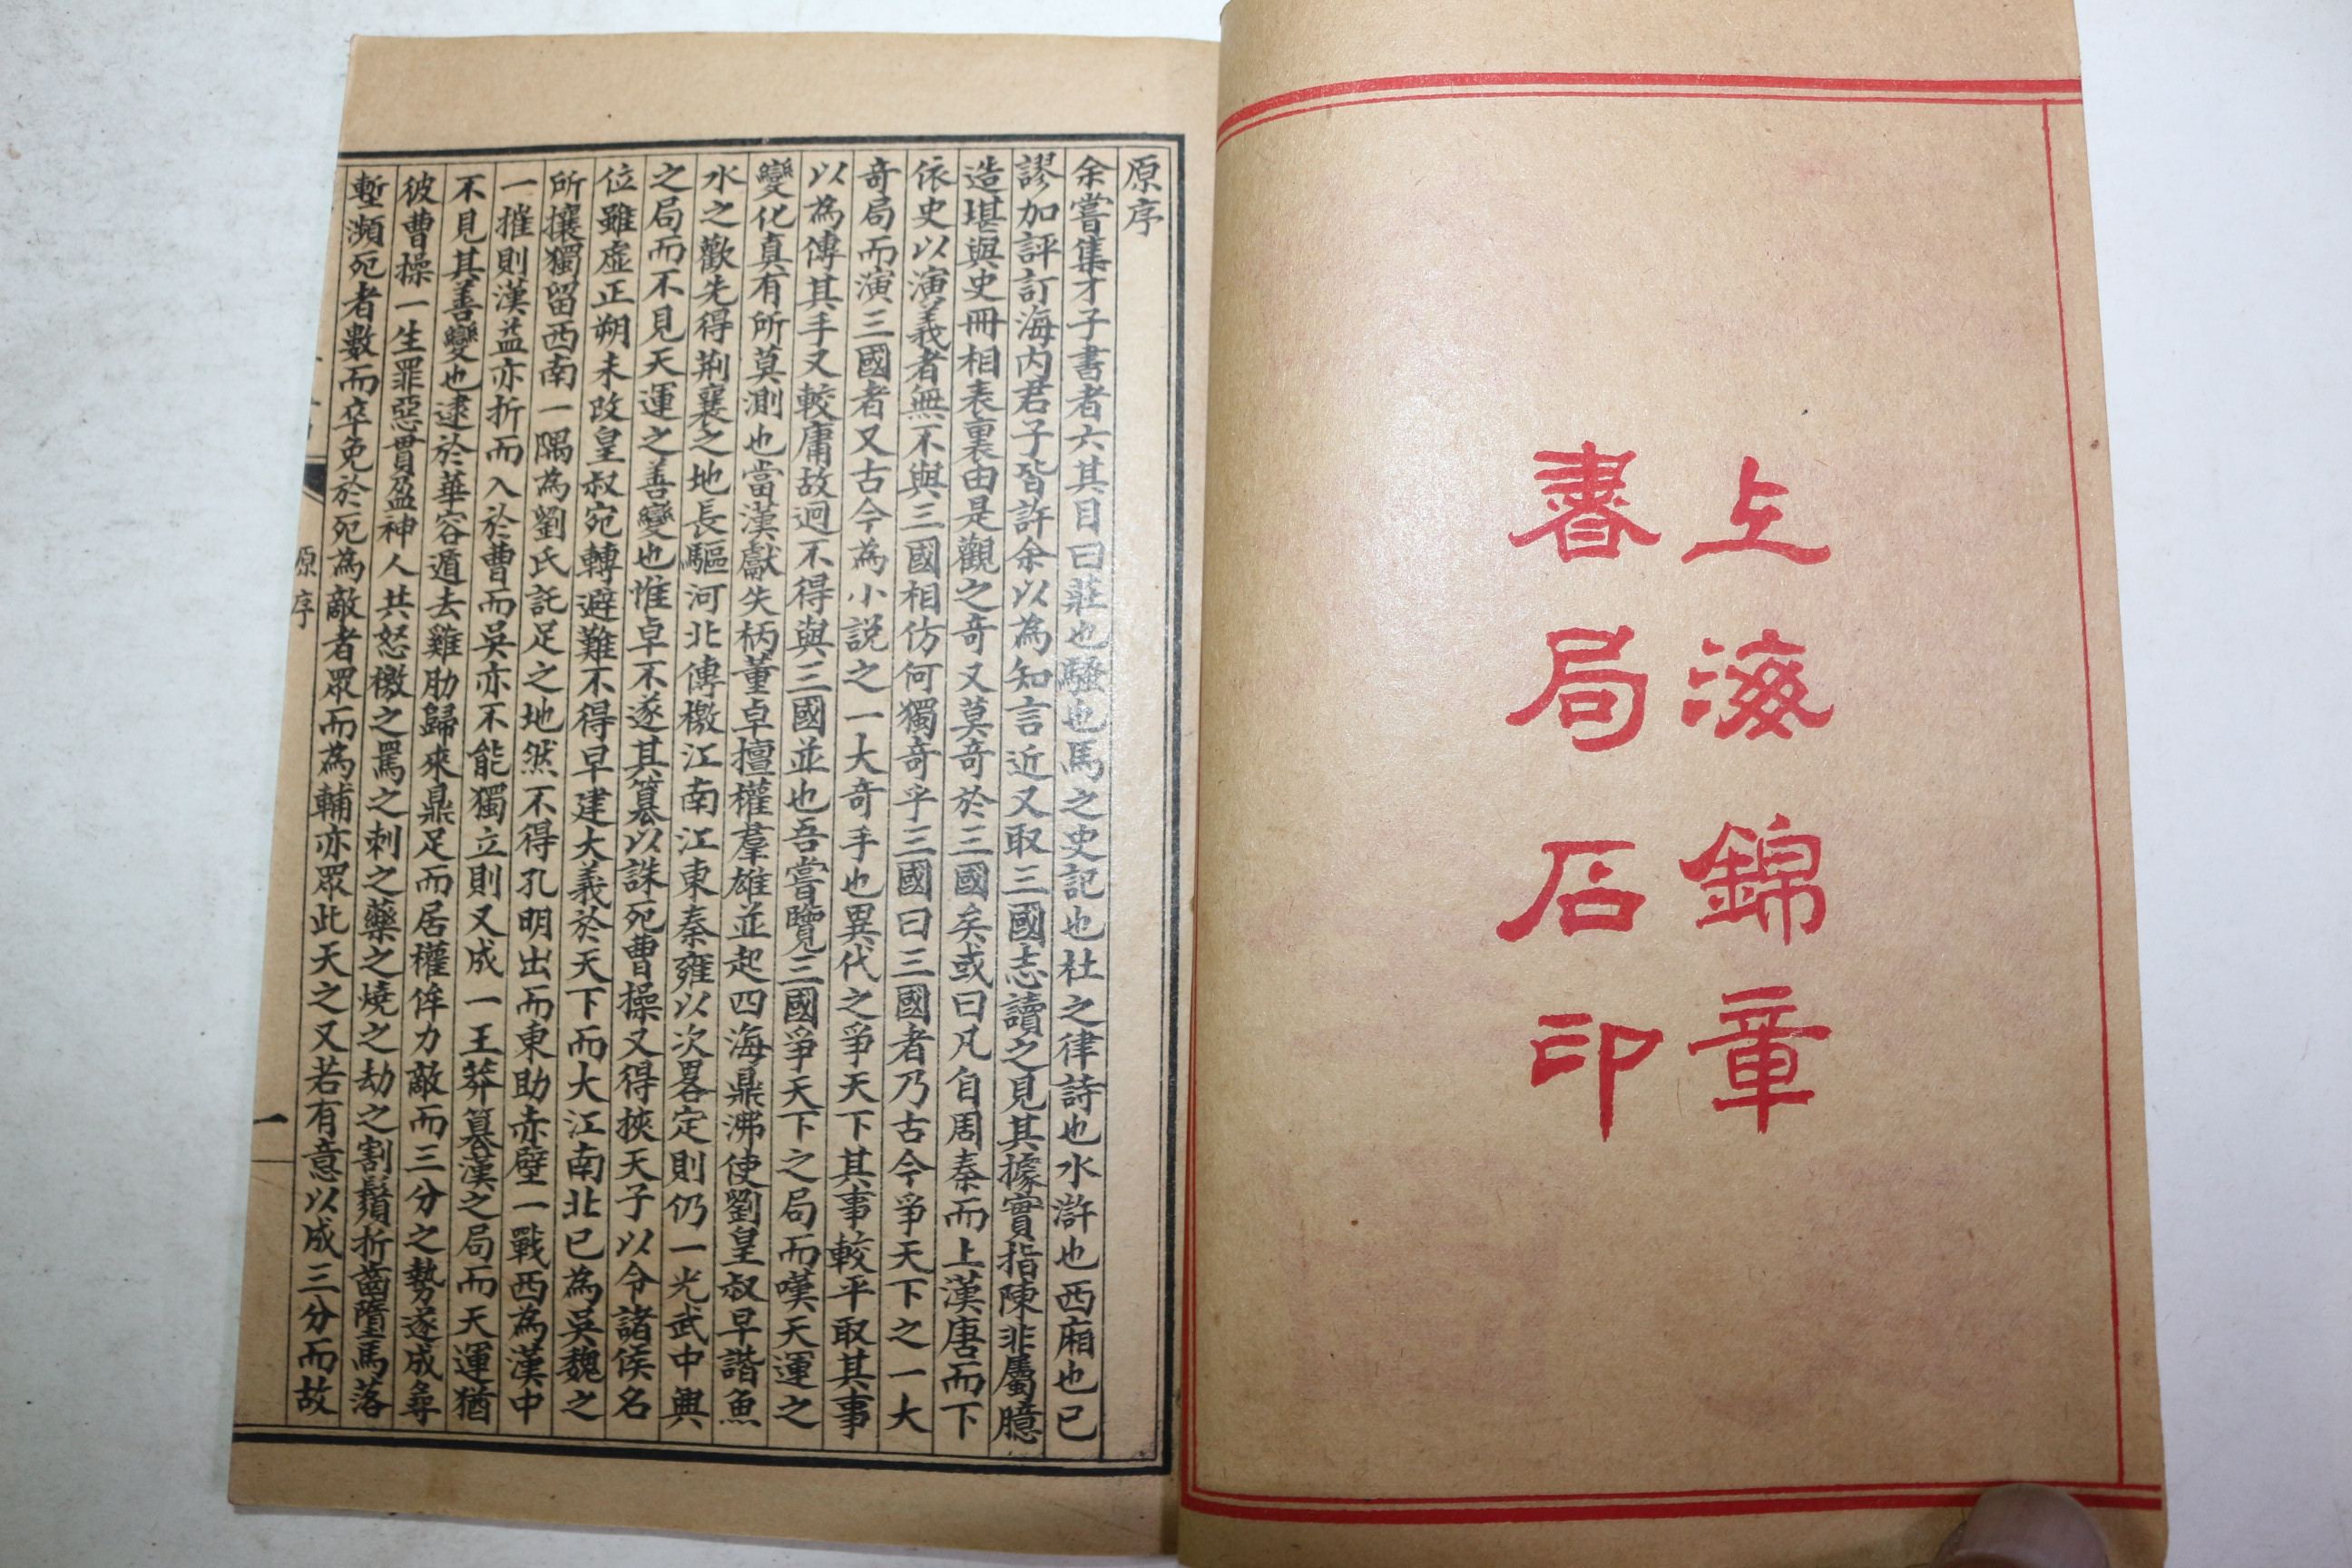 上海錦章
書局石印
原序
余嘗集才子書者六其目曰莊也騷也馬之史記也杜之律詩也水滸也西廂也已
謬加評訂海内君子皆許余以為知言近又取三國志讀之見其據實指陳非屬臆
造堪與史冊相表裏由是觀之奇又莫奇於三國矣或曰凡自周秦而上漢唐而下
依史以演義者無不與三國相仿何獨奇乎三國曰三國者乃古今爭天下之一大
奇局而演三國者又古今為小説之一大奇手也異代之爭天下其事較平取其事
以為傳其手又較庸故迥不得與三國並也吾嘗覽三國爭天下之局而嘆天運之
變化真有所莫測也當漢獻失柄董卓擅權羣雄並起四海鼎沸使劉皇叔早諧魚
水之歡先得荆襄之地長驅河北傳檄江南江東秦雍以次畧定則仍一光武中興
之局而不見天運之善變也惟卓不遂其篡以誅死曹操又得挾天子以令諸侯名
位雖虛正朔未改皇叔宛轉避難不得早建大義於天下而大江南北已為吳魏之
所攘獨留西南一隅為劉氏託足之地然不得孔明出而東助赤壁一戰西為漢中
一摧則漢益亦折而入於曹而吳亦不能獨立則又成一王莽篡漢之局而天運猶
不見其善變也逮於華容遁去雞肋歸來鼎足而居權侔力敵而三分之勢遂成尋
彼曹操一生罪惡貫盈神人共怒檄之罵之刺之藥之燒之劫之割鬚折齒墮馬落
塹瀕死者數而卒免於死為敵者眾而為輔亦眾此天之又若有意以成三分而故
原序
一